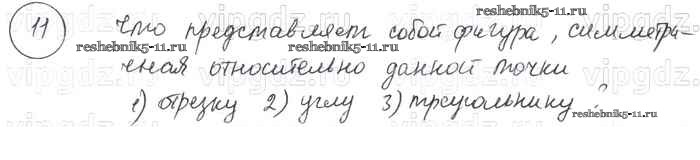 11 Что представляет собой фигура, симметри-
чная относительно данной точки
1) отрезку 2) углу 3) треугольнику?
reshebnik5-11.ru
reshebnik5-11.ru
reshebnik5-11.ru
reshebnik5-11.ru